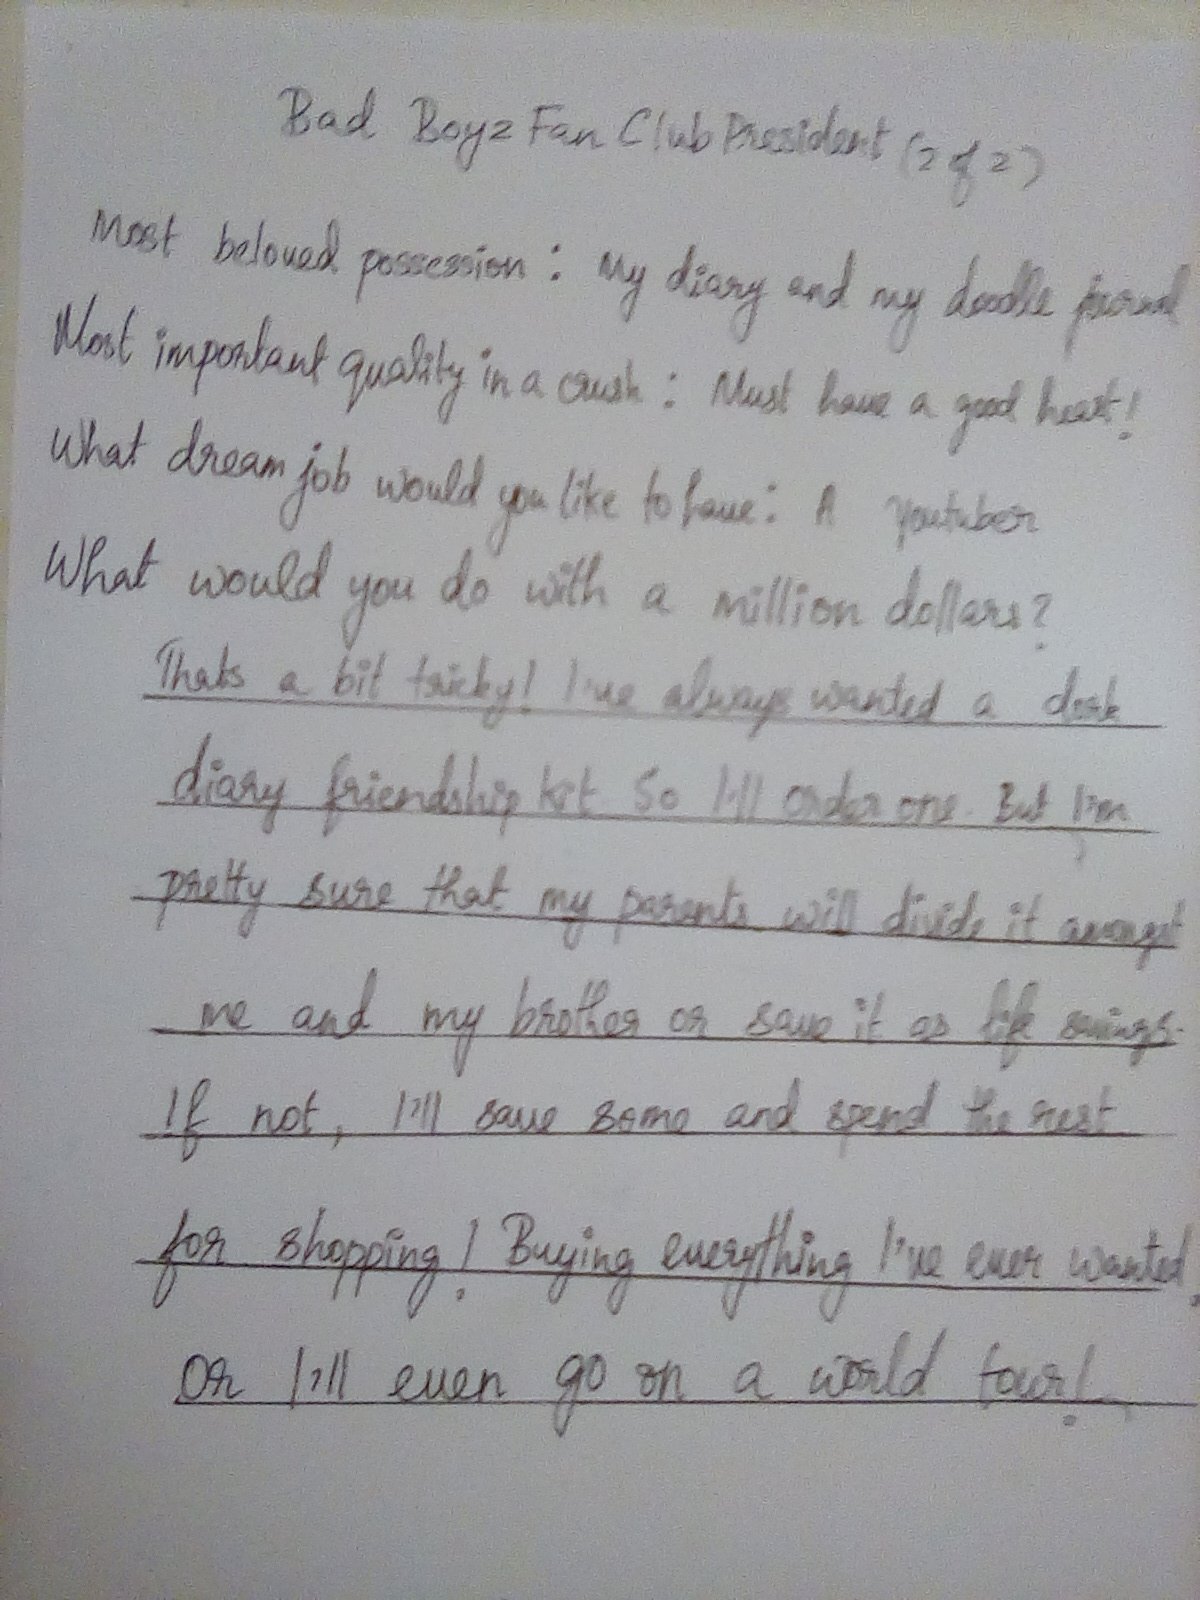 Bad Boyz Fan Club President (2 of 2)
Most beloved possession : My diary and my doodle journal
Most important quality in a crush : Must have a good heart!
What dream job would you like to have : A Youtuber
What would you do with a million dollars?
Thats a bit tricky! I've always wanted a dork
diary friendship kit So I'll order one. But I'm
pretty sure that my parents will divide it amongst
me and my brother or save it as life savings.
If not, I'll save some and spend the rest
for shopping! Buying everything I've ever wanted.
Or I'll even go on a world tour!